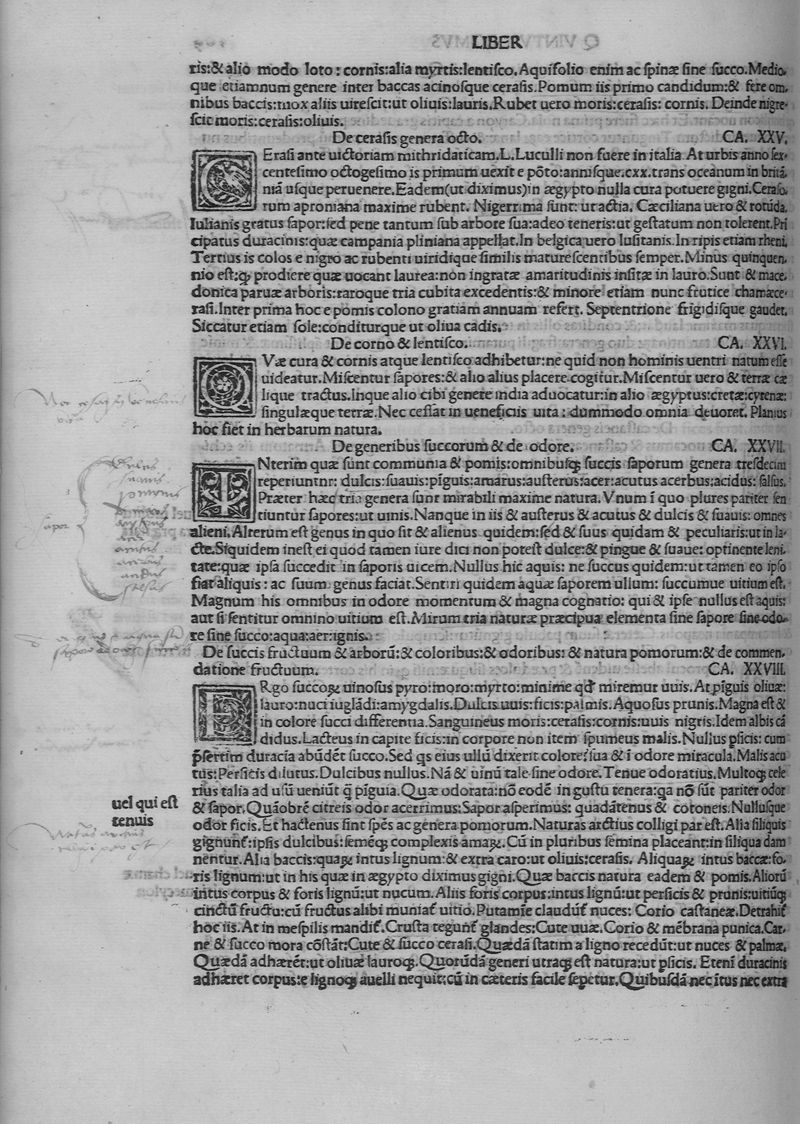 LIBER
ris:& alio modo loto: cornis:alia myrtis:lentiſco. Aquifolio enim ac ſpinæ ſine ſucco. Medio,
que etiamnum genere inter baccas acinoſque ceraſis. Pomum iis primo candidum:& fere om,
nibus baccis:mox aliis uireſcit:ut oliuis:lauris. Rubet uero moris:ceraſis: cornis. Deinde nigre-
ſcit moris:ceraſis:oliuis.
De ceraſis genera octo. CA. XXV.
CEraſi ante uictoriam mithridaticam.L.Luculli non fuere in italia. At urbis anno ſex-
centeſimo octogeſimo is primum uexit e põto:anniſque.cxx.trans oceanum in britã,
niã uſque peruenere. Eadem(ut diximus)in ægypto nulla cura potuere gigni. Ceraſo,
rum aproniana maxime rubent. Nigerrima ſunt: ut actia. Cæciliana uero & rotũda.
Iulianis gratus ſapor:ſed pene tantum ſub arbore ſua:adeo teneris:ut geſtatum non tolerent. Pri
cipatus duracinis:quæ campania pliniana appellat. In belgica uero luſitanis. In ripis etiam rheni.
Tertius is colos e nigro ac rubenti uiridique ſimilis matureſcentibus ſemper. Minus quinquen,
nio eſt:ꝙ prodiere quæ uocant laurea:non ingratæ amaritudinis inſitæ in lauro. Sunt & mace,
donica paruæ arboris:raroque tria cubita excedentis:& minore etiam nunc frutice chamæce-
raſi. Inter prima hoc e pomis colono gratiam annuam refert. Septentrione frigidiſque gaudet.
Siccatur etiam ſole:conditurque ut oliua cadis.
De corno & lentiſco. CA. XXVI.
QVæ cura & cornis atque lentiſco adhibetur:ne quid non hominis uentri natum eſſe
uideatur. Miſcentur ſapores:& alio alius placere cogitur. Miſcentur uero & terræ cæ
lique tractus. Inque alio cibi genere india aduocatur:in alio ægyptus:cretæ:cyrenæ:
ſingulæque terræ. Nec ceſſat in ueneficiis uita: dummodo omnia deuoret. Planius
hoc fiet in herbarum natura.
De generibus ſuccorum & de odore. CA. XXVII.
INterim quæ ſunt communia & pomis:omnibuſꝙ ſuccis ſaporum genera treſdecim
reperiuntur: dulcis:ſuauis:pĩguis:amarus:auſterus:acer:acutus acerbus:acidus: ſalſus.
Præter hæc tria genera ſunt mirabili maxime natura. Vnum ĩ quo plures pariter ſen
tiuntur ſapores:ut uinis. Nanque in iis & auſterus & acutus & dulcis & ſuauis: omnes
alieni. Alterum eſt genus in quo ſit & alienus quidem:ſed & ſuus quidam & peculiaris:ut in la-
cte. Siquidem ineſt ei quod tamen iure dici non poteſt dulce:& pingue & ſuaue: optinente leni.
tate:quæ ipſa ſuccedit in ſaporis uicem. Nullus hic aquis: ne ſuccus quidem:ut tamen eo ipſo
fiat aliquis: ac ſuum genus faciat. Sentiri quidem aquæ ſaporem ullum: ſuccumue uitium eſt.
Magnum his omnibus in odore momentum & magna cognatio: qui & ipſe nullus eſt aquis:
aut ſi ſentitur omnino uitium eſt. Mirum tria naturæ præcipua elementa ſine ſapore ſine odo-
re ſine ſucco:aqua:aer:ignis.
De ſuccis fructuum & arborũ:& coloribus:& odoribus: & natura pomorum:& de commen,
datione fructuum. CA. XXVIII.
ERgo ſuccoꝝ uinoſus pyro:moro:myrto:minime qđ miremur uuis. At pĩguis oliuæ:
lauro:nuci iuglãdi:amygdalis. Dulcis uuis:ficis:palmis. Aquoſus prunis. Magna eſt &
in colore ſucci differentia. Sanguineus moris:ceraſis:cornis:uuis nigris. Idem albis cã
didus. Lacteus in capite ficis:in corpore non item ſpumeus malis. Nullus pſicis: cum
pſertim duracia abũdẽt ſucco. Sed qs eius ullũ dixerit colore? ſua & ĩ odore miracula. Malis acu
tus:Perſicis dilutus. Dulcibus nullus. Nã & uinũ tale ſine odore. Tenue odoratius. Multoꝙ cele
rius talia ad uſũ ueniũt q̃ pĩguia. Quæ odorata:nõ eodẽ in guſtu tenera:qa nõ ſũt pariter odor
uel qui eſt
tenuis
& ſapor. Quãobrẽ citreis odor acerrimus:Sapor aſperimus: quadãtenus & cotoneis. Nulluſque
odor ficis. Et hactenus ſint ſpẽs ac genera pomorum. Naturas arctius colligi par eſt. Alia ſiliquis
gignunſ:ipſis dulcibus:ſemẽꝙ complexis amaꝝ. Cũ in pluribus ſemina placeant:in ſiliqua dam
nentur. Alia baccis:quaꝝ intus lignum:& extra caro:ut oliuis:ceraſis. Aliquaꝝ intus baccæ:fo,
ris lignum:ut in his quæ in ægypto diximus gigni. Quæ baccis natura eadem & pomis. Aliorũ
intus corpus & foris lignũ:ut nucum. Aliis foris corpus:intus lignũ:ut perſicis & prunis:uitiũꝙ
cinctũ fructu:cũ fructus alibi muniaſ uitio. Putamĩe claudunſ nuces: Corio caſtaneæ. Detrahiſ
hoc iis. At in meſpilis mandiſ. Cruſta tegunſ glandes:Cute uuæ. Corio & mẽbrana punica. Car,
ne & ſucco mora cõſtãt:Cute & ſucco ceraſi. Quædã ſtatim a ligno recedũt:ut nuces & palmæ.
Quædã adhærẽt:ut oliuæ lauroꝙ. Quorũdã generi utraꝙ eſt natura:ut pſicis. Etenĩ duracinis
adhæret corpus:e lignoꝙ auelli nequit:cũ in cæteris facile ſepetur. Quibuſdã nec ĩtus nec extra